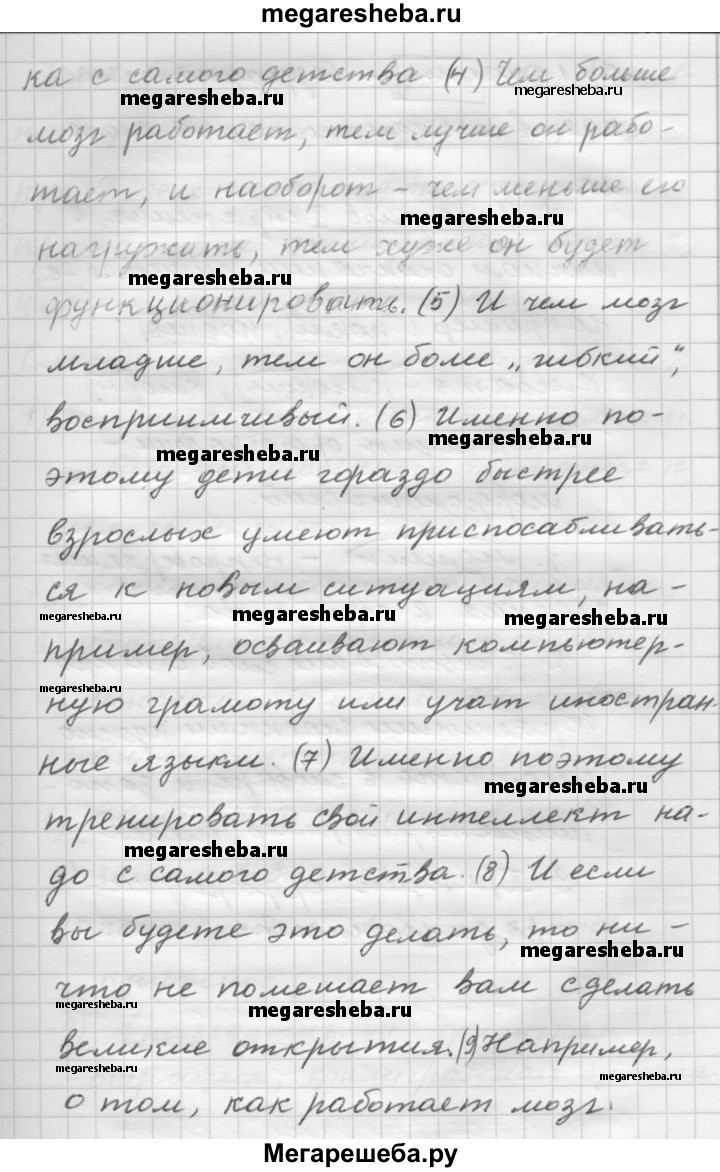 megaresheba.ru
ка с самого детства (4) Чем больше
megaresheba.ru megaresheba.ru
мозг работает, тем лучше он рабо-
тает, и наоборот - чем меньше его
megaresheba.ru
нагружать, тем хуже он будет
megaresheba.ru
функционировать. (5) И чем мозг
младше, тем он более „гибкий“,
восприимчивый. (6) Именно по-
megaresheba.ru megaresheba.ru
этому дети гораздо быстрее
взрослых умеют приспосабливать-
ся к новым ситуациям, на-
megaresheba.ru megaresheba.ru megaresheba.ru
пример, осваивают компьютер-
megaresheba.ru
ную грамоту или учат иностран-
ные языки. (7) Именно поэтому
megaresheba.ru
тренировать свой интеллект на-
megaresheba.ru
до с самого детства. (8) И если
вы будете это делать, то ни-
megaresheba.ru
что не помешает вам сделать
megaresheba.ru megaresheba.ru
великие открытия. (9) Например,
megaresheba.ru megaresheba.ru
о том, как работает мозг.
Мегарешеба.ру